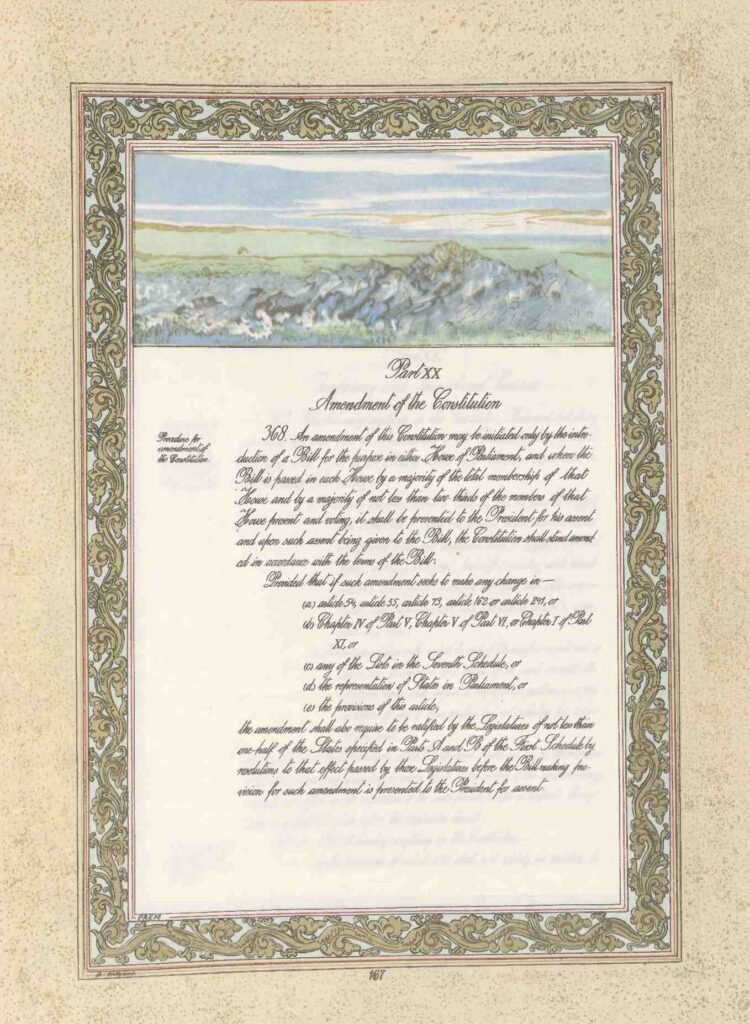 Part XX
Amendment of the Constitution
Procedure for
amendment of
the Constitution.
368. An amendment of this Constitution may be initiated only by the intro-
duction of a Bill for the purpose in either House of Parliament, and when the
Bill is passed in each House by a majority of the total membership of that
House and by a majority of not less than two thirds of the members of that
House present and voting, it shall be presented to the President for his assent
and upon such assent being given to the Bill, the Constitution shall stand amend
ed in accordance with the terms of the Bill:
Provided that if such amendment seeks to make any change in —
(a) article 54, article 55, article 73, article 162 or article 241, or
(b) Chapter IV of Part V, Chapter V of Part VI, or Chapter I of Part
XI, or
(c) any of the Lists in the Seventh Schedule, or
(d) the representation of States in Parliament, or
(e) the provisions of this article,
the amendment shall also require to be ratified by the Legislatures of not less than
one-half of the States specified in Parts A and B of the First Schedule by
resolutions to that effect passed by those Legislatures before the Bill making pro-
vision for such amendment is presented to the President for assent
PREM
167